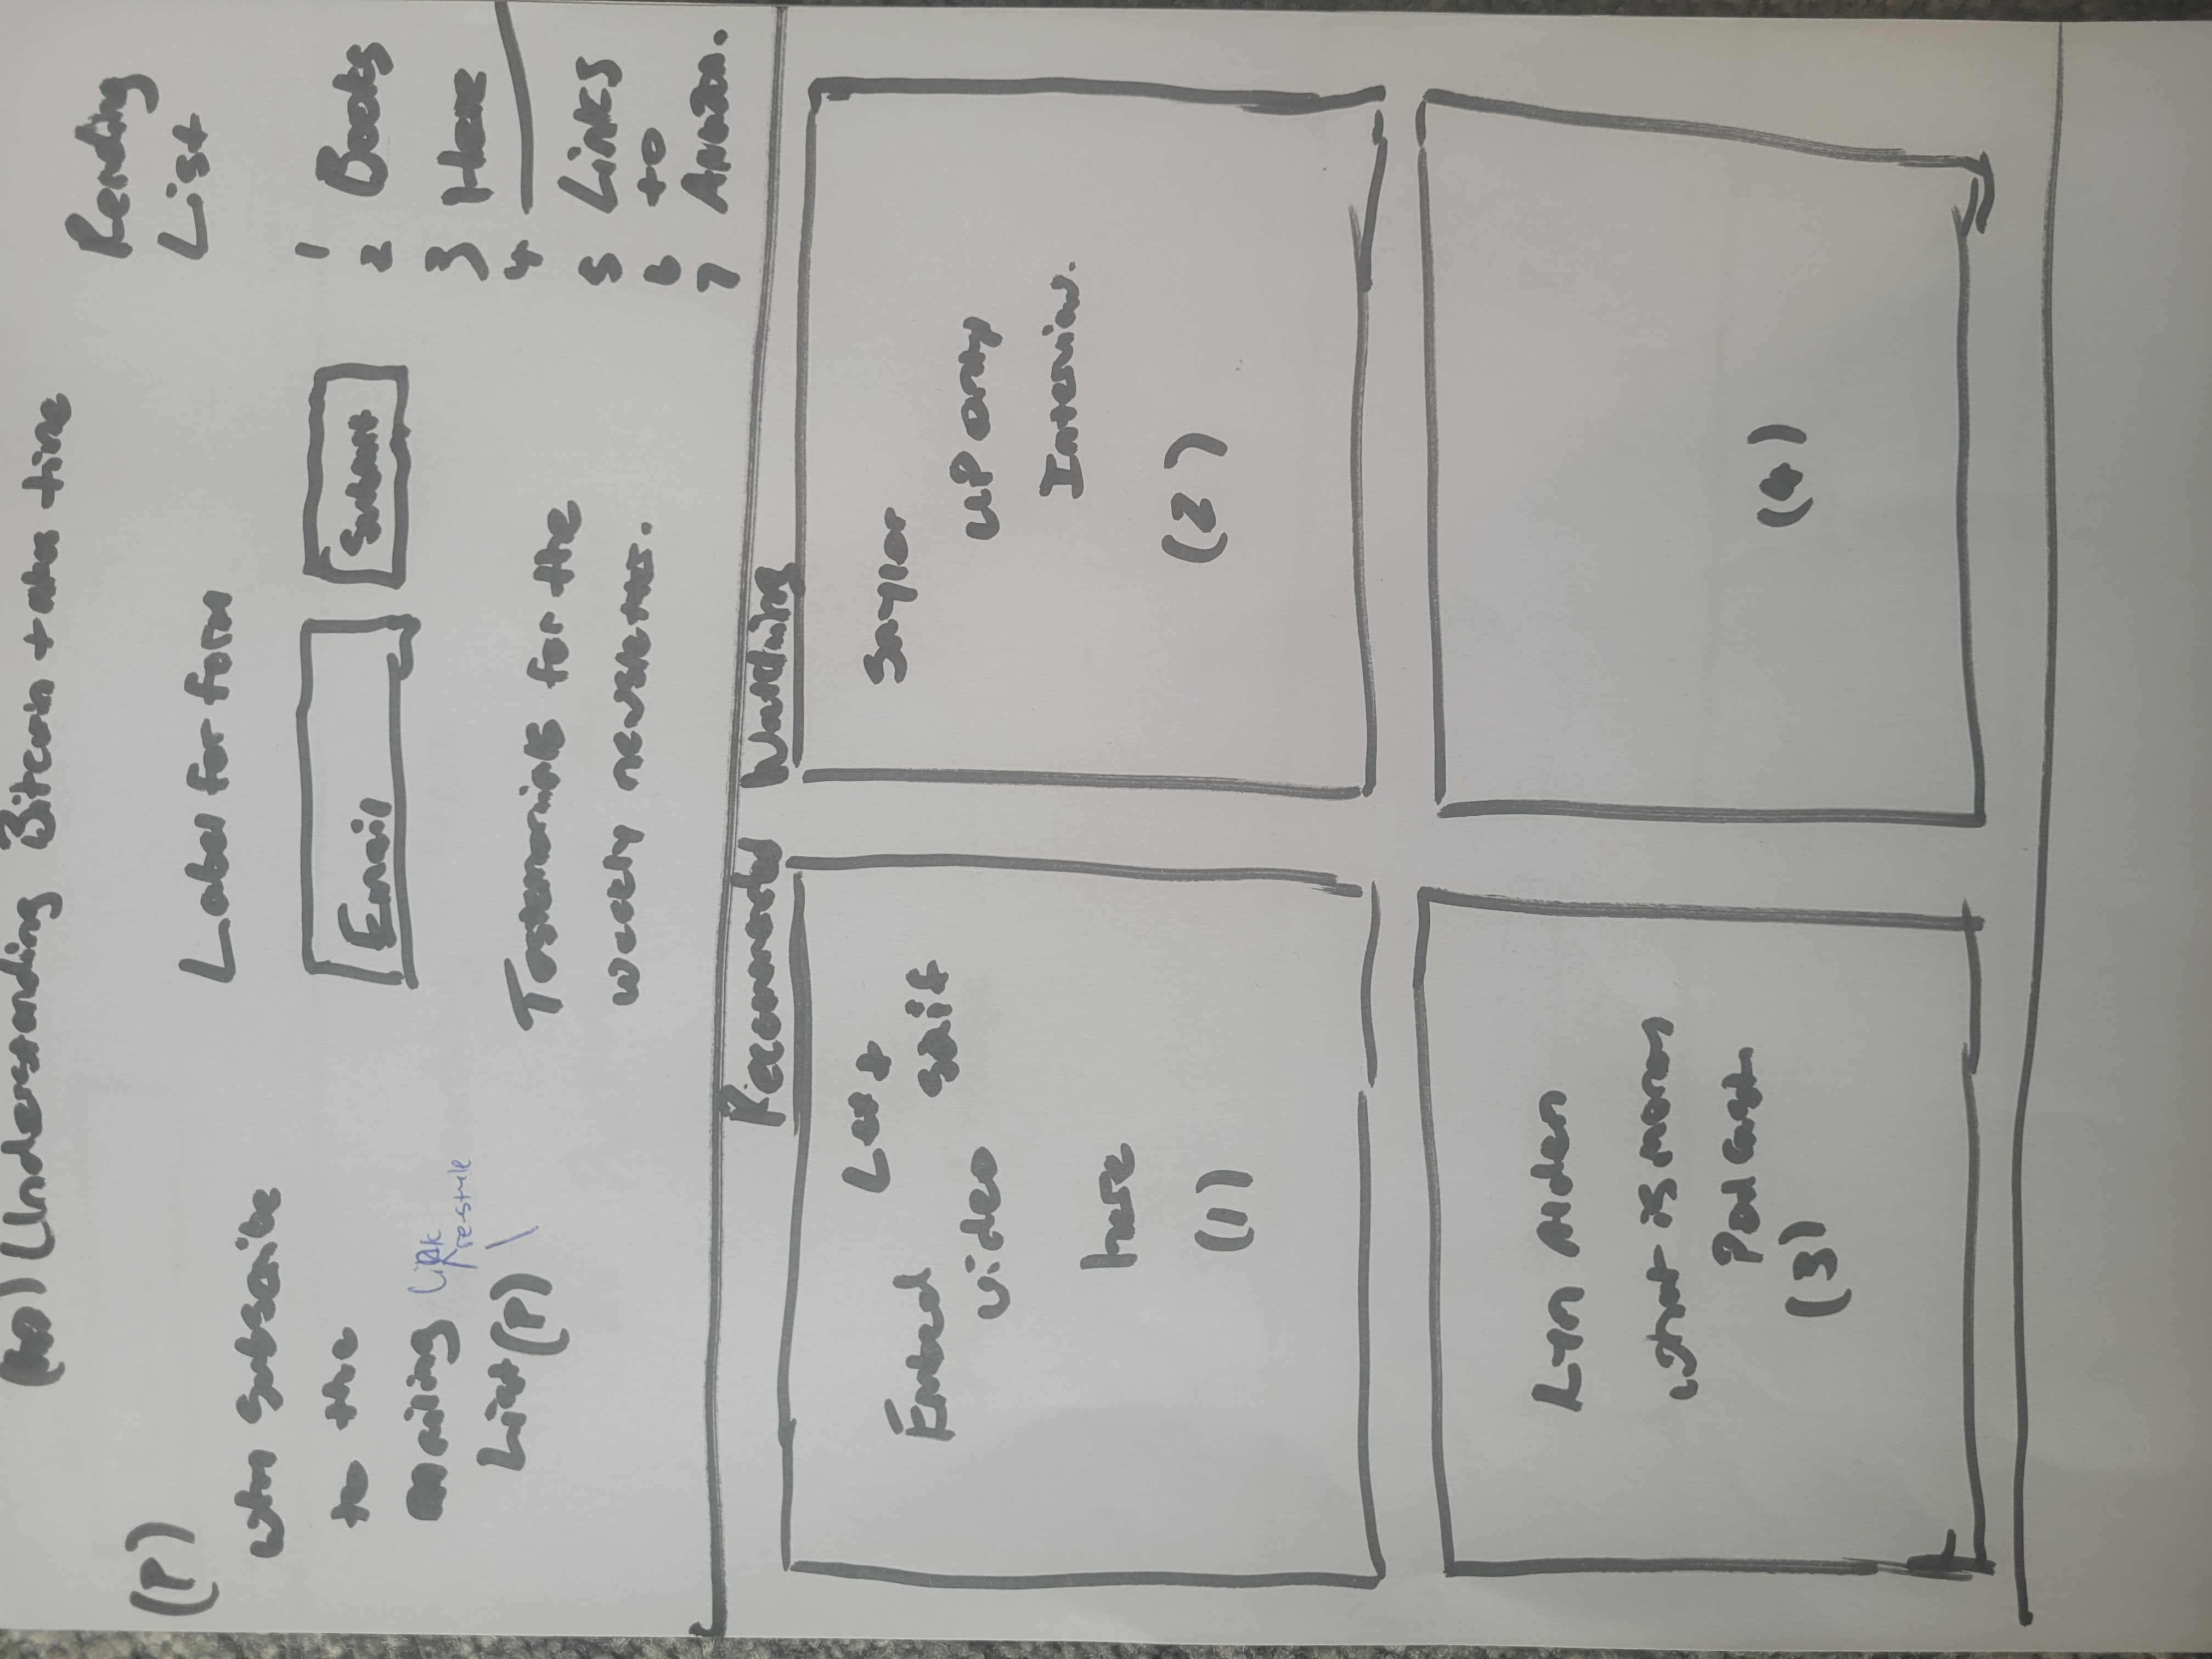 Understanding Bitcoin takes time
(P)
why subscribe
to the
mailing
List (P)
Link
re-style
Label for form
Email
Submit
Testemonials for the
weekly newsletter.
Reading
List
1
2 Books
3 Here
4
5 Links
6 to
7 Amazon.
Recommended Watching
Lex +
Saif
Embed
video
here
(1)
Saylor
UP only
Interview.
(2)
Lyn Alden
what is money
Podcast
(3)
(4)